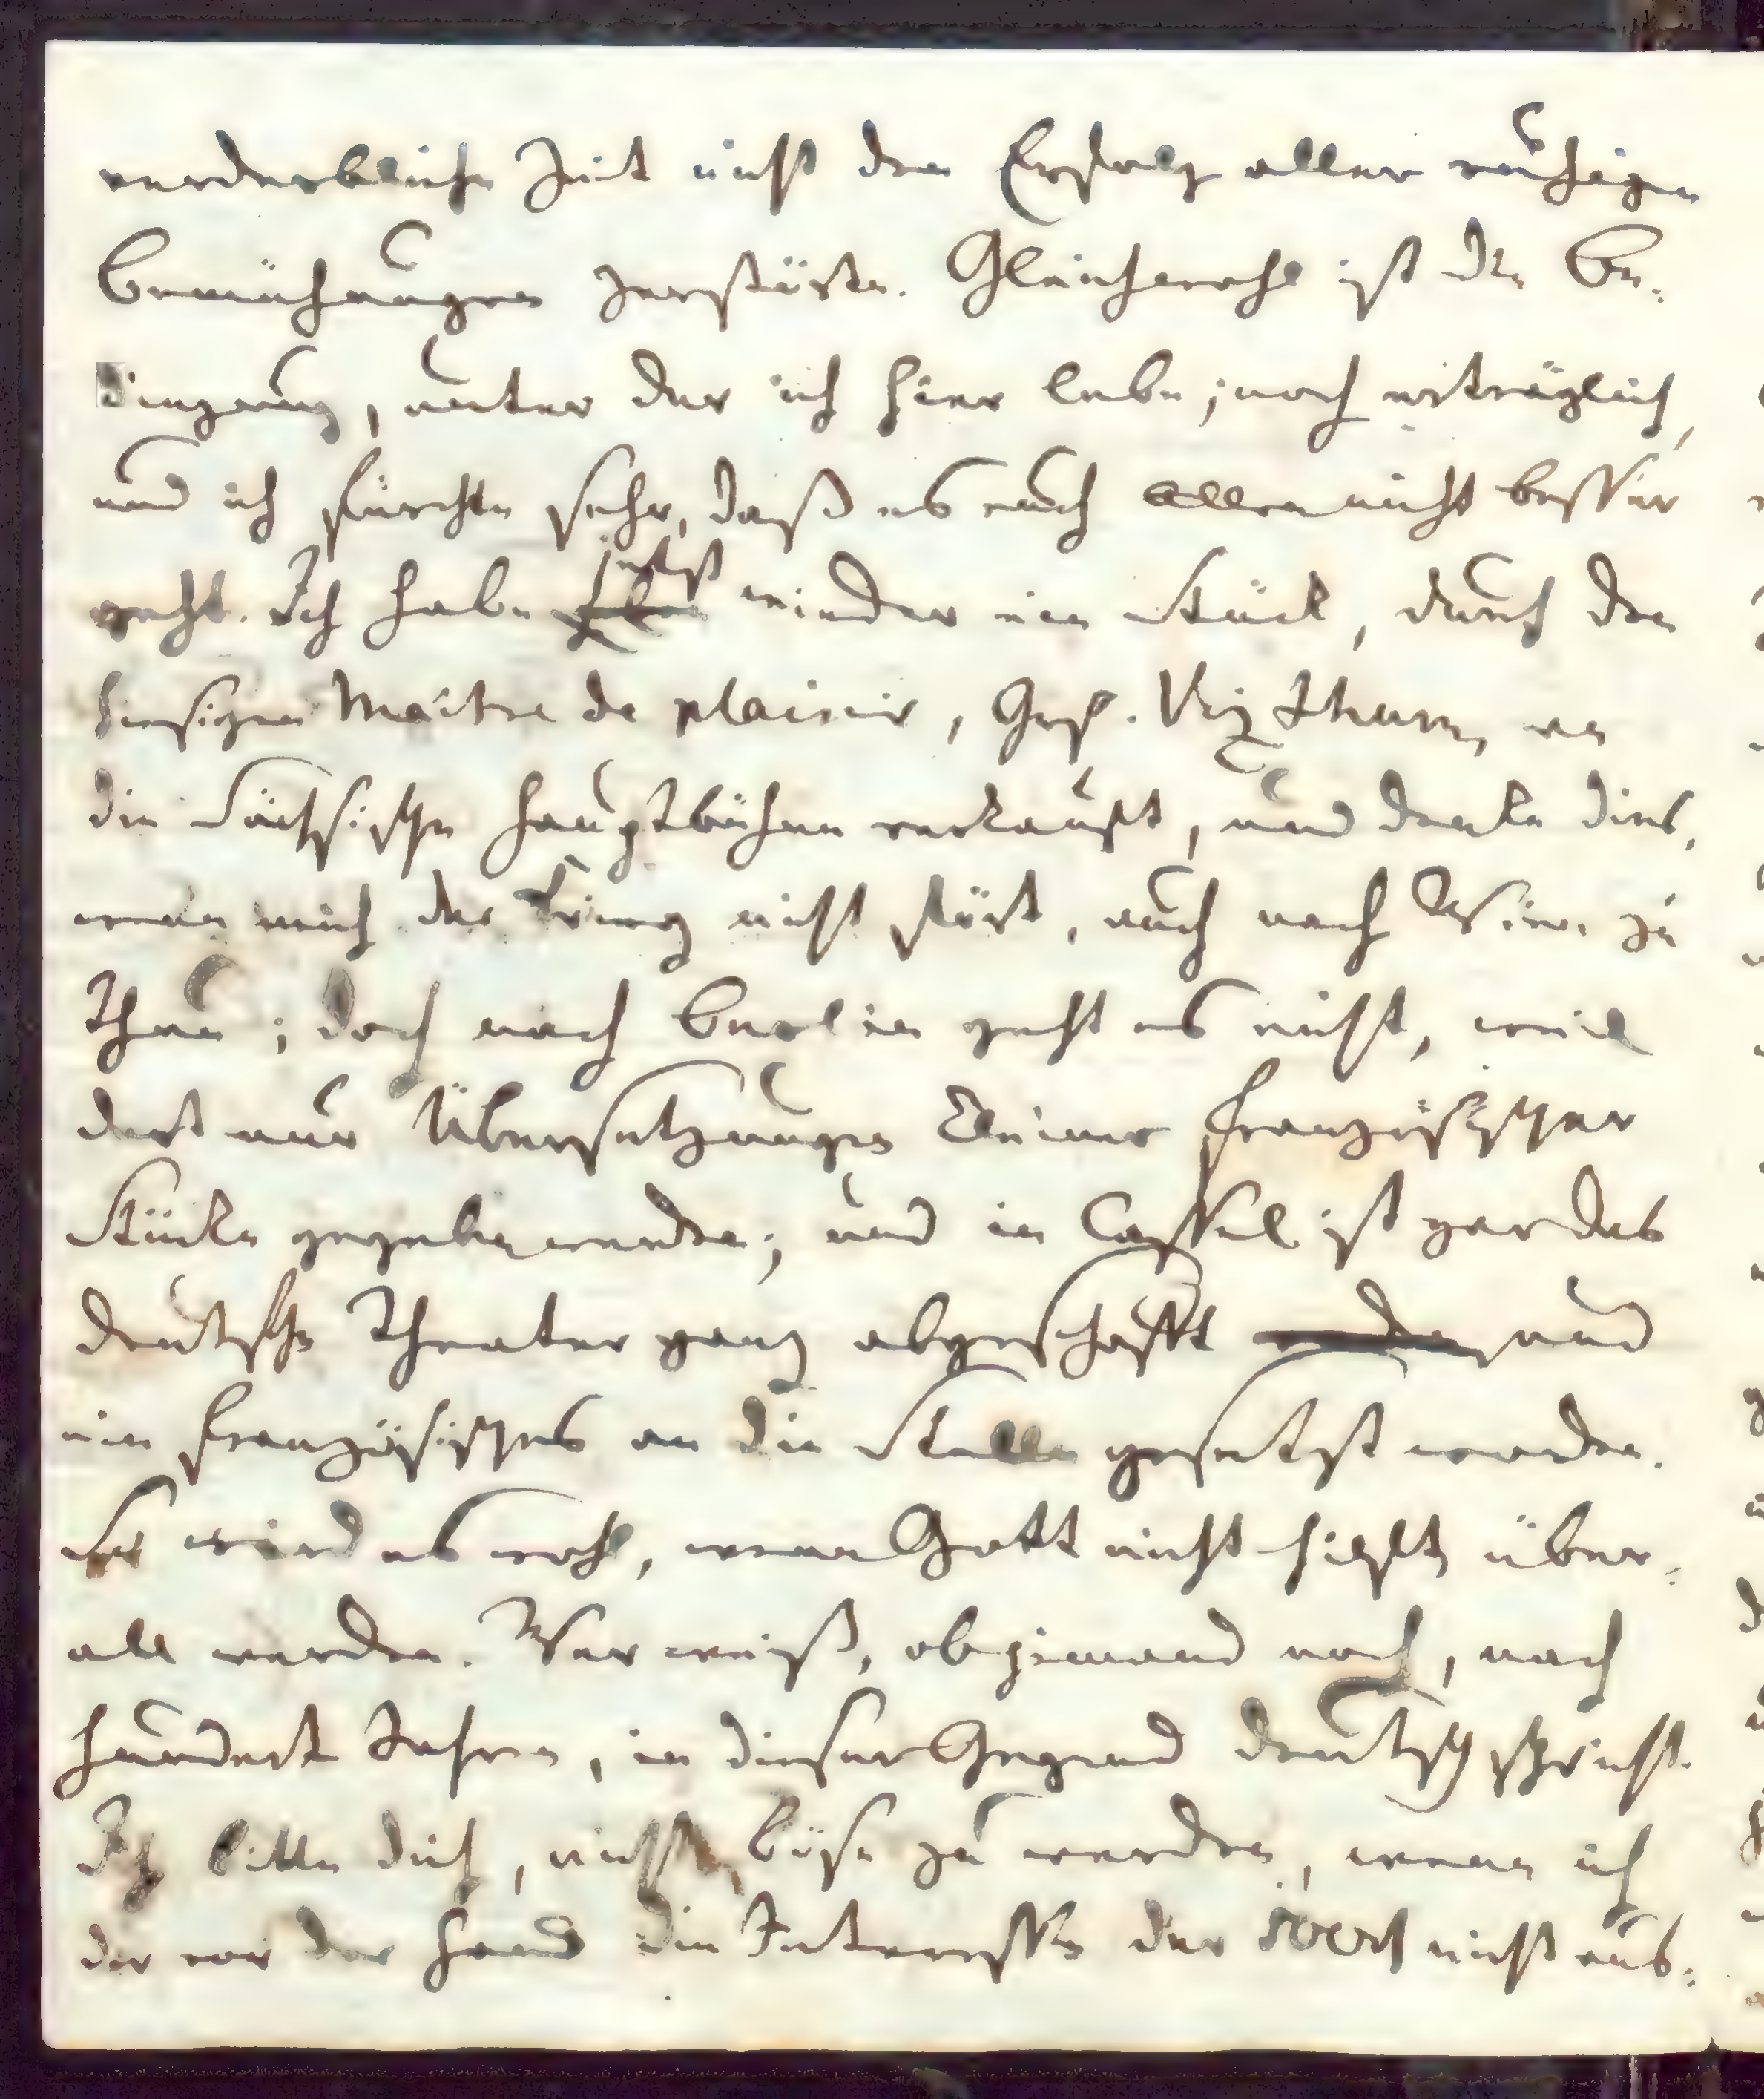 verderbliche Zeit nicht den Erfolg aller ruhigen
Bemühungen zerstörte. Gleichwohl ist die Be-
dingung, unter der ich hier lebe, noch erträglich,
und ich fürchte sehr, daß es euch allen nicht besser
geht. Ich habe jetzt wieder ein Stück, durch den
hiesigen Maitre de plaisir, Grf. Vizthum, an
die Sächsische Hauptbühne verkauft, und denke dies,
wenn mich der Krieg nicht stört, auch nach Wien zu
thun; doch nach Berlin geht es nicht, weil
dort nur Übersetzungen kleiner französischer
Stücke gegeben werden; und in Cassel ist gar das
deutsche Theater ganz abgeschafft und
ein französisches an die Stelle gesetzt worden.
So wird es wohl, wenn Gott nicht hilft, über-
all werden. Wer weiß, ob jemand noch, nach
hundert Jahren, in dieser Gegend deutsch spricht.
Ich bitte dich, nicht böse zu werden, wenn ich
dir vor der Hand die Interessen der 500rh nicht aus-